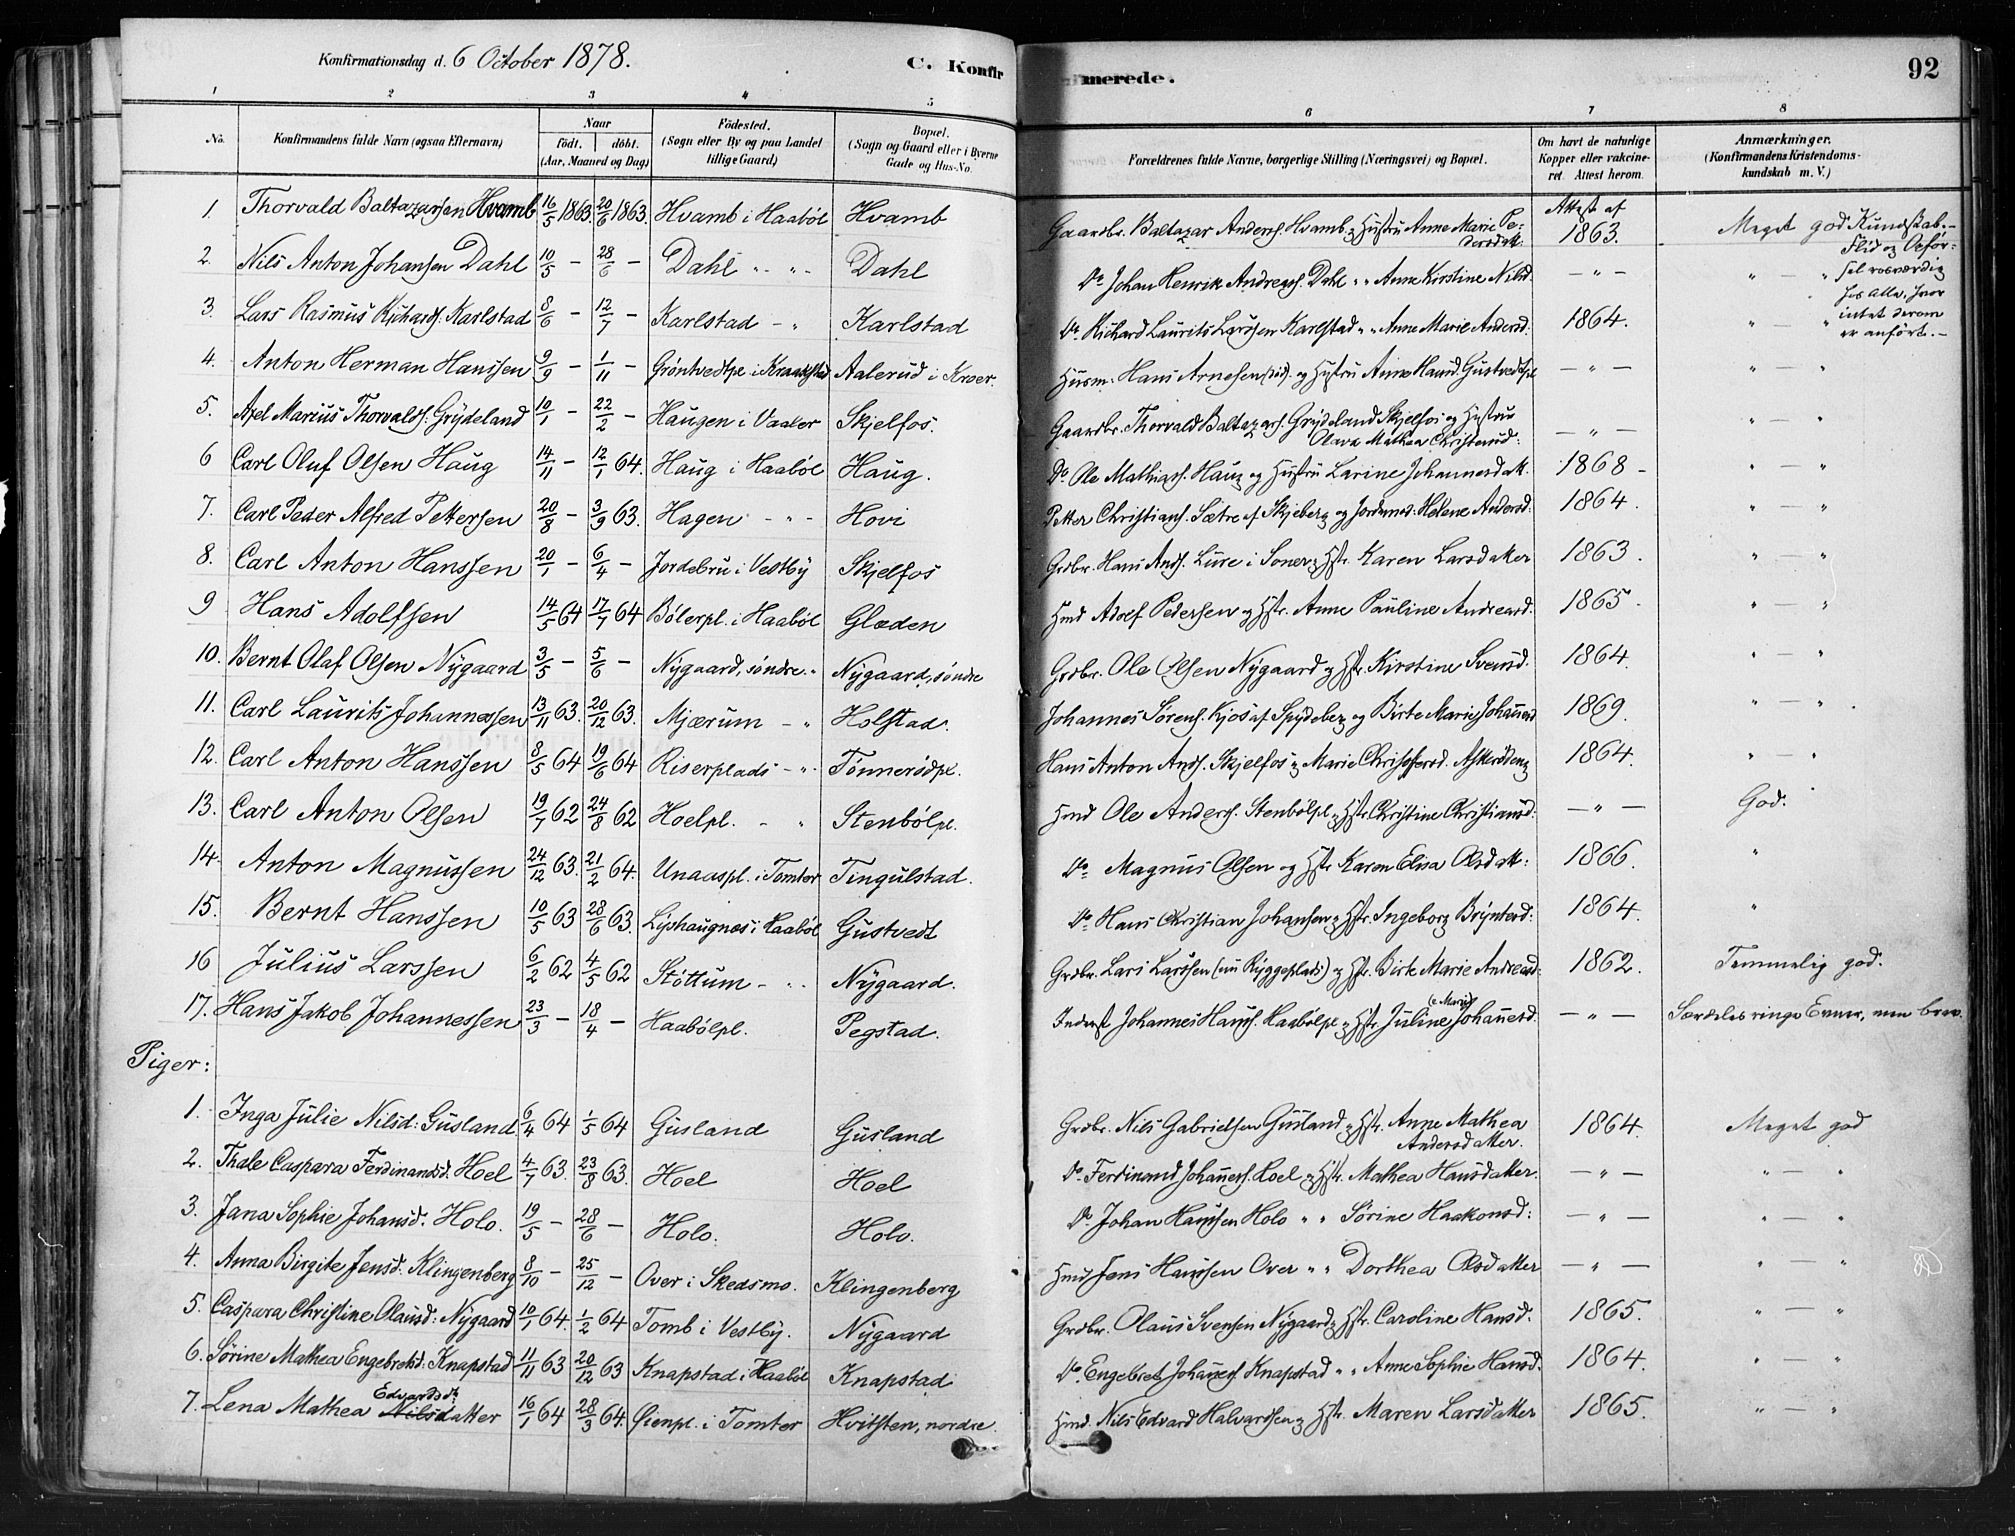 Konfirmationsdag d. 6 October 1878.
C. Konfirmerede.
92
1 2 3 4 5 6 7 8
No. Konfirmandens fulde Navn (ogsaa Efternavn) Naar født. døbt. (Aar, Maaned og Dag) Fødested. (Sogn eller By og paa Landet tillige Gaard) Bopæl. (Sogn og Gaard eller i Byerne Gade og Hus-No. Forældrenes fulde Navne, borgerlige Stilling (Næringsvei) og Bopæl. Om havt de naturlige Kopper eller vakcineret. Attest herom. Anmærkninger. (Konfirmandens Kristendomskundskab m. V.)
1. Thorvald Baltazarsen Hvamb 16/5 1863. 20/6 1863. Hvamb i Haabøl Hvamb Gaardbr. Baltazar Anders. Hvamb & Hustru Anne Marie Pedersdatt. Attest af 1863. Meget god Kundskab. - Flid og Opførsel rosværdig hos Alle, hvor intet derom er anført. -
2. Nils Anton Johansen Dahl 10/5 - 28/6 - Dahl " " Dahl Do Johan Henrik Andreas. Dahl " " Anne Kirstine Nilsd. - " - " - "
3. Lars Rasmus Richards. Karlstad 8/6 - 12/7 - Karlstad - " Karlstad Do. Richard Laurits Larssen Karlstad " " Anne Marie Andersd. 1864. " "
4. Anton Herman Hanssen 9/9 - 1/11 - Grøntvedtpl. i Kraakstad Aalerud i Kroer. Husm. Hans Arnesen (død) og Hustru Anne Hansd. Gustvedtpl - " - " - "
5. Axel Marius Thorvalds. Grydeland 10/1 - 22/2 - Haugen i Vaaler Skjelfos. Gaardbr. Thorvald Baltazars. Grydeland Skjelfos og Hustru Olava Mathea Christensd: - " - " - "
6 Carl Oluf Olsen Haug 14/11 - 12/1 64. Haug i Haabøl Haug. Do Ole Mathias. Haug og Hustru Larine Johannesdatt. 1868 - " - "
7. Carl Peder Alfred Pettersen 20/8 - 3/9 63. Hagen - " - Hovi Petter Christians. Sætre af Skjeberg og Helene Andersd: 1864. " - "
8. Carl Anton Hanssen 20/1 - 6/4 - Jordebru i Vestby Skjelfos Grdbr. Hans Ands. Lure i Soner & Hstr. Karen Larsdatter 1863. " - "
9 Hans Adolfsen 14/5 64 17/7 64 Bølerpl. i Haabøl Glæden Hmd Adolf Pedersen og Hstr. Anne Pauline Andreasd. 1865. " - "
10. Bernt Olaf Olsen Nygaard 3/5 - 5/6 - Nygaard, søndre. " Nygaard, søndre Grdbr. Ole Olsen Nygaard og Hstr. Kirstine Svensd. 1864. " - "
11. Carl Laurits Johannessen 13/11 63. 20/12 63. Mjærum - " Holstad. Johannes Sørens. Kjos af Spydeberg og Birte Marie Johannesd 1869. " - " .
12. Carl Anton Hanssen 8/5 64 19/6 64 Riserplads - " Tønnerødpl. Hans Anton Ands. Skjelfos & Marie Christoffersd. 1864. " - "
13. Carl Anton Olsen 19/7 62 24/8 62 Hoelpl. - " Stenbølpl. Hmd Ole Anders. Stenbølpl & Hstr. Christine Christiansd: - " - God.
14. Anton Magnussen 24/12 63. 21/2 64. Unaaspl. i Tomter Tingulstad. Do. Magnus Olsen og Hstr. Karen Elisa Olsdatt: 1866. "
15. Bernt Hanssen 10/5 63 28/6 63. Lyshaugnes i Haabøl Gustvedt Do. Hans Christian Johansen & Hstr. Ingeborg Brynterd: 1864. "
16 Julius Larssen 6/2 62 4/5 62 Støttum - " Nygaard. Grdbr. Lars Larssen (nu Ryggeplads) og Hstr. Birte Marie Andreasd: 1862. Temmelig god.
17. Hans Jakob Johannessen 23/3 - 18/4 - Haabølpl. Pegstad. Inderst Johannes Hanss. Haabølpl & Hstr Juline (e Marie) Johannesd. - " - Særdeles ringe Evner, men brav.
Piger:
1. Inga Julie Nilsd: Gusland 6/4 64 1/5 64 Gusland Gusland Grdbr. Nils Gabrielsen Gusland & Hstr. Anne Mathea Andersdatter. 1864. Meget god
2. Thale Caspara Ferdinandsd. Hoel 4/7 63. 23/8 63. Hoel Hoel Do. Ferdinand Johannes. Loel & Hstr. Mathea Hansdatter. - " - " - "
3. Jana Sophie Johansd. Holo. 19/5 - 28/6 - Holo. Holo. Do. Johan Hanssen Holo " " Sørine Haakonsd: - " - " - "
4. Anna Birgite Jensd. Klingenberg 8/10 - 25/12 - Over i Skedsmo. Klingenberg Hmd Jens Hanssen Over " " Dorthea Olsdatter - " - " - "
5. Caspara Christine Olausd: Nygaard 10/1 64. 1/2 64 Tomb i Vestby. Nygaard Grdbr. Olaus Svensen Nygaard & Hstr. Caroline Hansd. 1865. " - "
6. Sørine Mathea Engebretsd: Knapstad 11/11 63 20/12 63 Knapstad i Haabøl Knapstad Do. Engebret Johannes. Knapstad " " Anne Sophie Hansd. 1864. " - "
7. Lena Mathea Nilsdatter Edvardsdt 16/1 64 28/3 64. Øienpl. i Tomter Hvitsten, nordre. Hmd. Nils Edvard Halvardsen & Hstr. Maren Larsdatter 1865. " - "